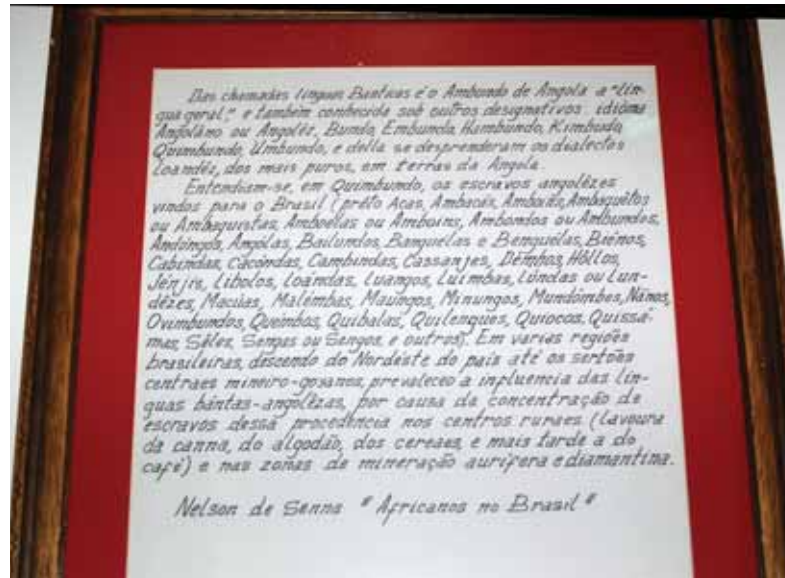 Das chamadas linguas Bantuas é o Ambundo de Angola a "lin-
gua geral" e também conhecida sob outros designativos: idioma
Angolano ou Angoléz, Bundo, Embundo, Hambundo, Kimbudo,
Quimbundo, Umbundo, e della se desprenderam os dialectos
Loandéz, dos mais puros, em terras da Angola.
Entendiam-se, em Quimbundo, os escravos angolêzes
vindos para o Brasil (prêto Aças, Ambacás, Amboids, Ambaquêtos
ou Ambaquistas, Amboelas ou Amboins, Ambondos ou Ambundos,
Andongos, Angolas, Bailundos, Banguelas e Benguelas, Biénos,
Cabindas, Cacondas, Cambindas, Cassanjes, Dêmbos, Hóllos,
Jénjis, Libolos, Loandas, Luangos, Luimbas, Lúndas ou Lun-
dézes, Macúas, Malembas, Mauongos, Minungos, Mundômbes, Nános,
Ovimbundos, Queimbos, Quibalas, Quilengues, Quiocos, Quissâ-
mas, Séles, Senges ou Sengos, e outros). Em varias regiões
brasileiras, descendo do Nordéste do país até os sertões
centraes mineiro-goyanos, prevaleceo a influencia das lín-
guas bántas-angolêzas, por causa da concentração de
escravos dessa procedência nos centros ruraes (lavoura
da canna, do algodão, dos cereaes, e mais tarde a do
café) e nas zonas de mineração aurífera e diamantina.
Nelson de Senna "Africanos no Brasil"